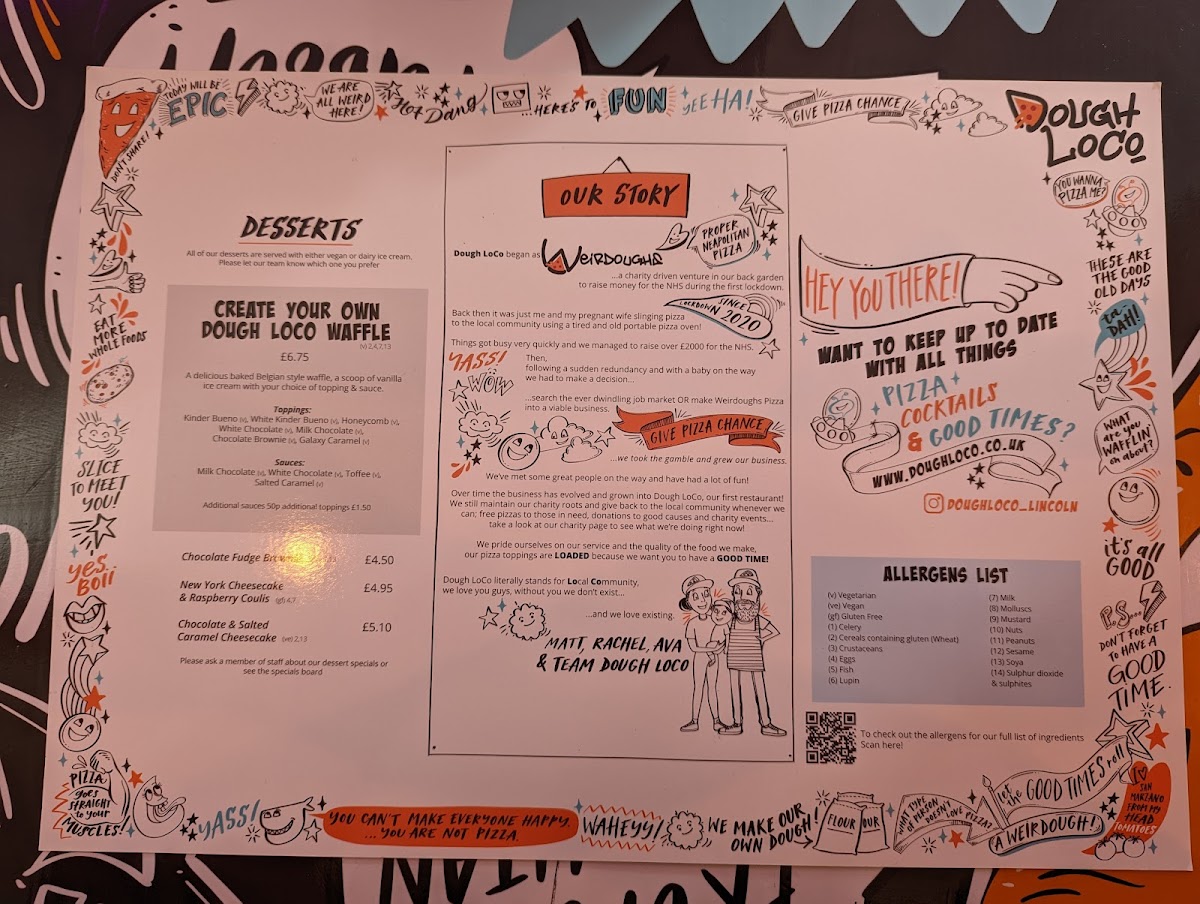 TODAY WILL BE
EPIC
WE ARE
ALL WEIRD
HERE!
HOT DANG
...HERE'S TO
FUN
YEE HA!
GIVE PIZZA CHANCE
DOUGH
LOCO
DON'T SHARE!
EAT
MORE
WHOLE FOODS
SLICE
TO MEET
YOU!
yes,
BOII
PIZZA
goes
STRAIGHT
to your
MUSCLES!
DESSERTS
All of our desserts are served with either vegan or dairy ice cream.
Please let our team know which one you prefer
CREATE YOUR OWN
DOUGH LOCO WAFFLE
(v) 2,4,7,13
£6.75
A delicious baked Belgian style waffle, a scoop of vanilla
ice cream with your choice of topping & sauce.
Toppings:
Kinder Bueno (v), White Kinder Bueno (v), Honeycomb (v),
White Chocolate (v), Milk Chocolate (v),
Chocolate Brownie (v), Galaxy Caramel (v)
Sauces:
Milk Chocolate (v), White Chocolate (v), Toffee (v),
Salted Caramel (v)
Additional sauces 50p additional toppings £1.50
Chocolate Fudge £4.50
New York Cheesecake
& Raspberry Coulis (gf) 4,7 £4.95
Chocolate & Salted
Caramel Cheesecake (ve) 2,13 £5.10
Please ask a member of staff about our dessert specials or
see the specials board
OUR STORY
PROPER
NEAPOLITAN
PIZZA
Dough LoCo began as WEIRDOUGHS
...a charity driven venture in our back garden
to raise money for the NHS during the first lockdown.
SINCE
LOCKDOWN 2020
Back then it was just me and my pregnant wife slinging pizza
to the local community using a tired and old portable pizza oven!
Things got busy very quickly and we managed to raise over £2000 for the NHS.
YASS!
WOW
Then,
following a sudden redundancy and with a baby on the way
we had to make a decision...
...search the ever dwindling job market OR make Weirdoughs Pizza
into a viable business.
GIVE PIZZA CHANCE
...we took the gamble and grew our business.
We've met some great people on the way and have had a lot of fun!
Over time the business has evolved and grown into Dough LoCo, our first restaurant!
We still maintain our charity roots and give back to the local community whenever we
can; free pizzas to those in need, donations to good causes and charity events...
take a look at our charity page to see what we're doing right now!
We pride ourselves on our service and the quality of the food we make,
our pizza toppings are LOADED because we want you to have a GOOD TIME!
Dough LoCo literally stands for Local Community,
we love you guys, without you we don't exist...
...and we love existing.
MATT, RACHEL, AVA
& TEAM DOUGH LOCO
HEY YOU THERE!
WANT TO KEEP UP TO DATE
WITH ALL THINGS
PIZZA
COCKTAILS
& GOOD TIMES?
WWW.DOUGHLOCO.CO.UK
DOUGHLOCO_LINCOLN
ALLERGENS LIST
(v) Vegetarian
(ve) Vegan
(gf) Gluten Free
(1) Celery
(2) Cereals containing gluten (Wheat)
(3) Crustaceans
(4) Eggs
(5) Fish
(6) Lupin
(7) Milk
(8) Molluscs
(9) Mustard
(10) Nuts
(11) Peanuts
(12) Sesame
(13) Soya
(14) Sulphur dioxide
& sulphites
To check out the allergens for our full list of ingredients
Scan here!
YOU WANNA
PIZZA ME?
THESE ARE
THE GOOD
OLD DAYS
ta-
DAH!
WHAT
are you
WAFFLIN'
on about?
it's all
GOOD
P.S...
DON'T FORGET
TO HAVE A
GOOD
TIME.
YASS!
YOU CAN'T MAKE EVERYONE HAPPY.
...YOU ARE NOT PIZZA.
WAHEYY!
WE MAKE OUR
OWN DOUGH!
FLOUR
OUR
WHAT TYPE
OF PERSON
DOESN'T LOVE PIZZA?
A WEIRDOUGH!
let
the GOOD TIMES roll
I
SAN
MARZANO
FROM MY
HEAD
TOMATOES